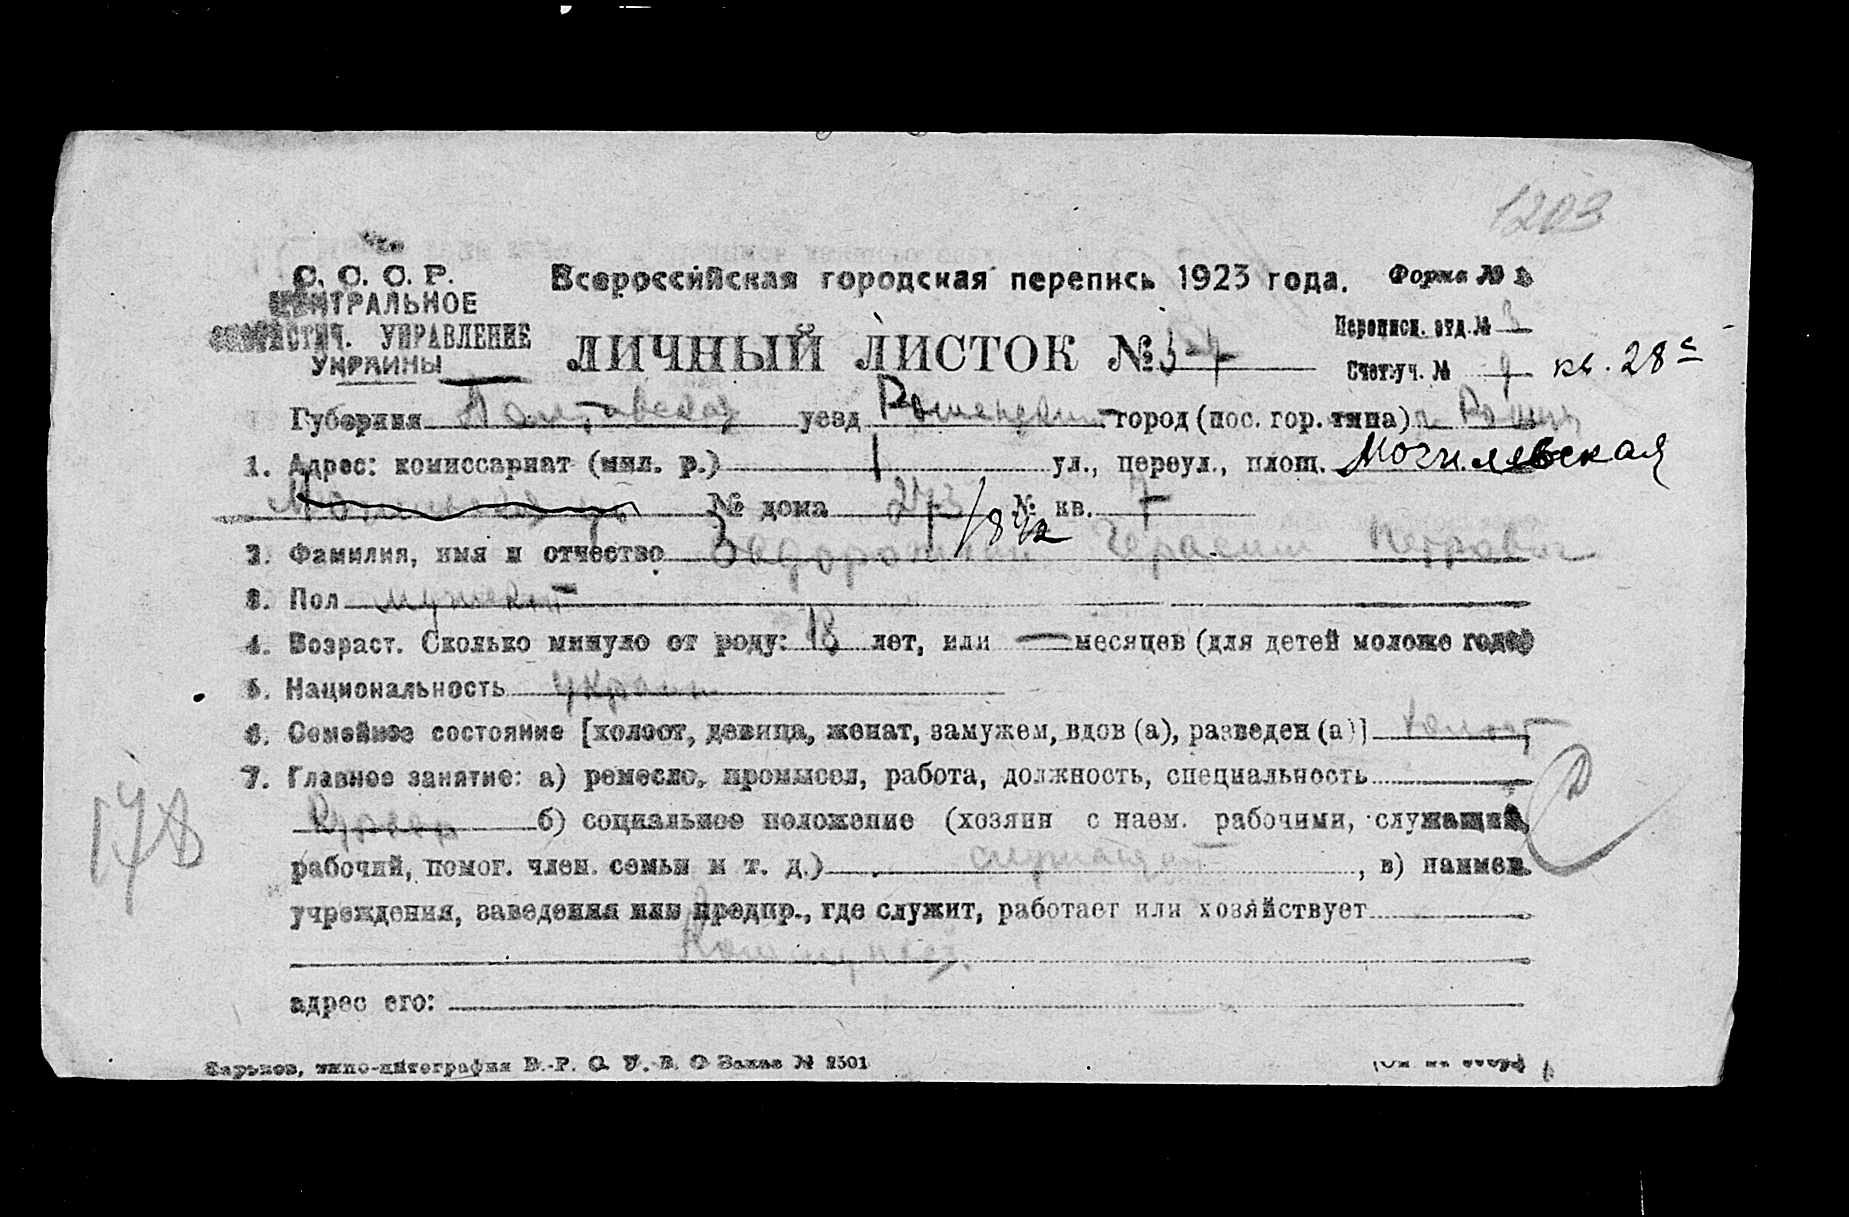 1203
С. С. С. Р.
ЦЕНТРАЛЬНОЕ
СТАТИСТИЧ. УПРАВЛЕНИЕ
УКРАИНЫ
Всероссийская городская перепись 1923 года.
Форма № 1
ЛИЧНЫЙ ЛИСТОК №
Переписн. отд. № 3
Счет. уч. № 9 кв. 28
Губерния Полтавская уезд Роменский город (пос. гор. типа) г. Ромны
1. Адрес: комиссариат (мил. р.) 1 ул., переул., площ. Могилевская
№ дома № кв.
2. Фамилия, имя и отчество Герасим Петрович
3. Пол мужской
4. Возраст. Сколько минуло от роду: 18 лет, или — месяцев (для детей моложе года)
5. Национальность украин
6. Семейное состояние [холост, девица, женат, замужем, вдов (а), разведен (а)] холост
7. Главное занятие: а) ремесло, промысел, работа, должность, специальность
Курьер б) социальное положение (хозяин с наем. рабочими, служащий,
рабочий, помог. член. семьи и т. д.) служащий, в) наимен.
учреждения, заведения или предпр., где служит, работает или хозяйствует
адрес его:
178
Харьков, типо-литография В.-Р. С. У. В. О Заказ № 2501